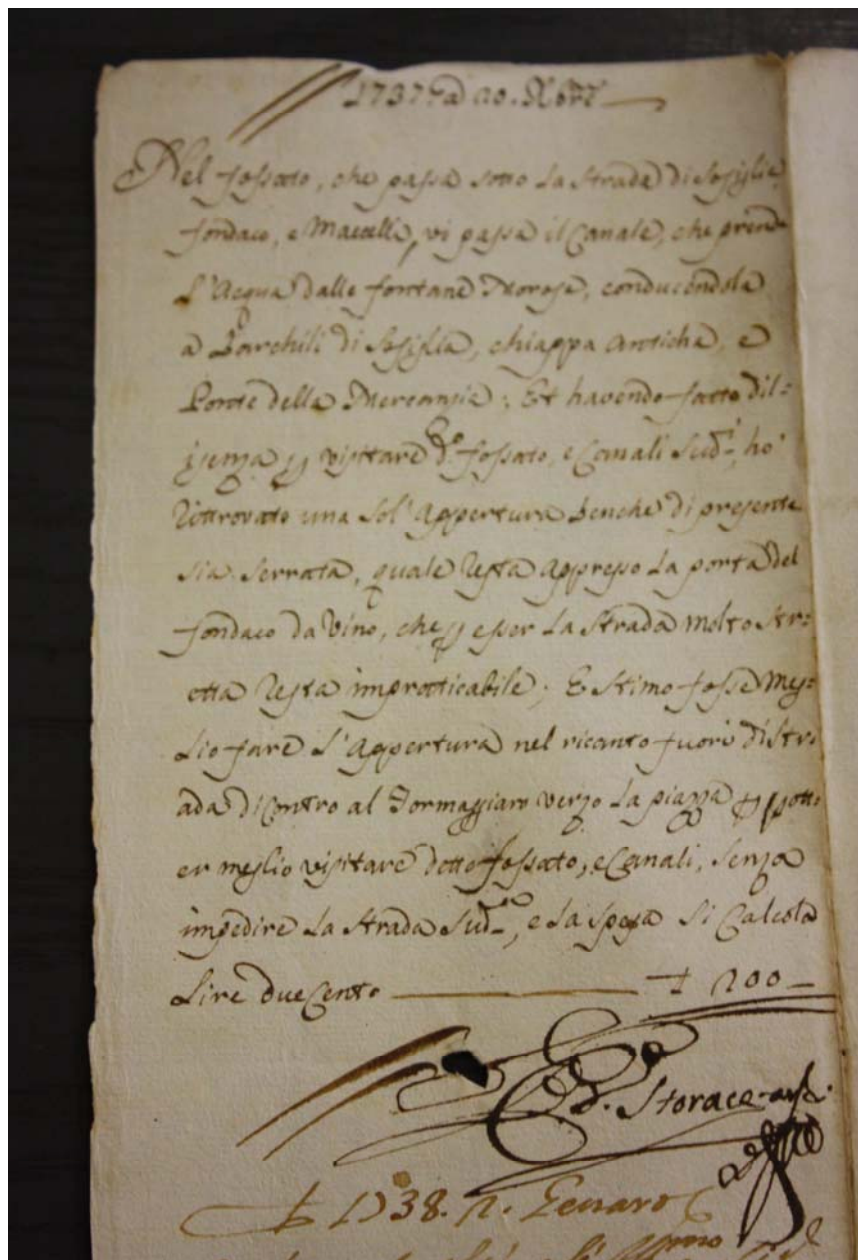 1737 a 20. Xbre
Nel fossato, che passa sotto la strada di Sosiglia,
fondaco, e Macelli, vi passa il Canale, che prende
L'Acqua dalle fontane Morose, conducendola
a Barchili di Sosiglia, chiappa Antiche, e
Ponte della Mercansia; Et havendo fatto dil=
igenza visitare do. fossato, e Canali Sudi., ho'
Ritrovato una Sol' Appertura benche di presente
sia Serrata, quale Resta Appresso La porta del
fondaco da Vino, che esser La Strada molto str=
etta Resta impratticabile; E Stimo fosse meg=
Lio fare L'Appertura nel ricanto fuori di Stra
ada di Contro al Formaggiaro verso La piazza pott
er meglio visitare detto fossato, e Canali, Senza
impedire La Strada Sud., e La Spesa Si Calcola
Lire due Cento 200
Storace
1738. 2. Genaro